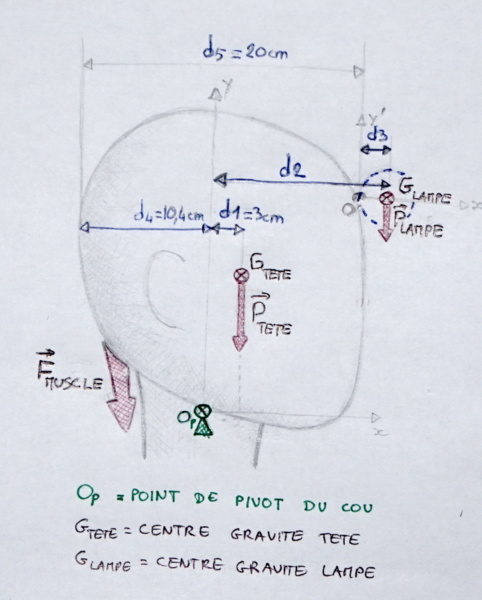 d5 = 20cm
y
y'
d3
d2
G LAMPE
O'
x'
P LAMPE
d4=10,4cm d1=3cm
G TETE
P TETE
F MUSCLE
Op
x
Op = POINT DE PIVOT DU COU
G TETE = CENTRE GRAVITE TETE
G LAMPE = CENTRE GRAVITE LAMPE